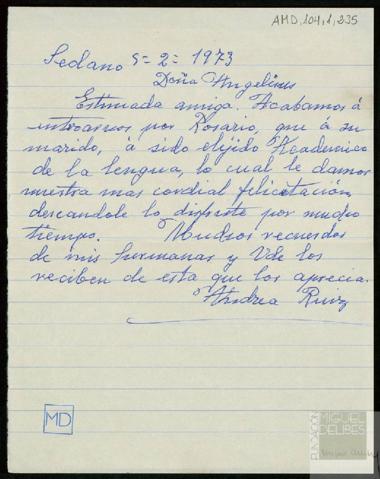 AMD, 104, 1, 235
Sedano 5-2-1973
Doña Angelines
Estimada amiga. Acabamos á
enterarnos por Rosário, que á su
marido, á sido elejido Academico
de la lengua, lo cual le damos
nuestra mas cordial felicitación
deseandole lo disfrute por mucho
tiempo. Muchos recuerdos
de mis hermanas y Vde los
reciben de esta que los aprecia.
Andrea Ruiz
MD
FUNDACIÓN
MIGUEL
DELIBES